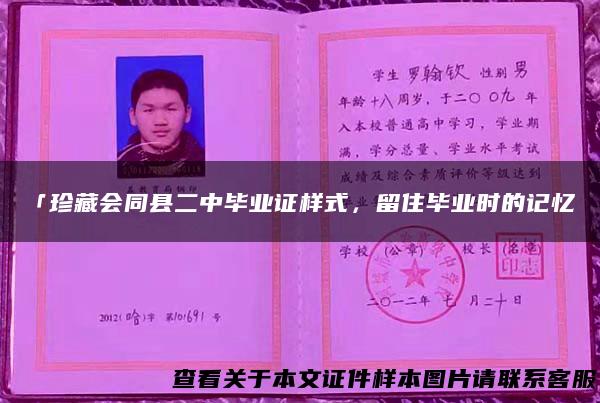 学生 罗翰钦 性别 男
年龄十八周岁，于二〇〇九年
入本校普通高中学习，学业期
满，学分总量、学业水平考试
成绩及综合素质评价等级达到
「珍藏会同县二中毕业证样式，留住毕业时的记忆
学校（公章） 校长（名章）
二〇一二年 七 月 二十 日
2012(哈)字 第101691 号
查看关于本文证件样本图片请联系客服